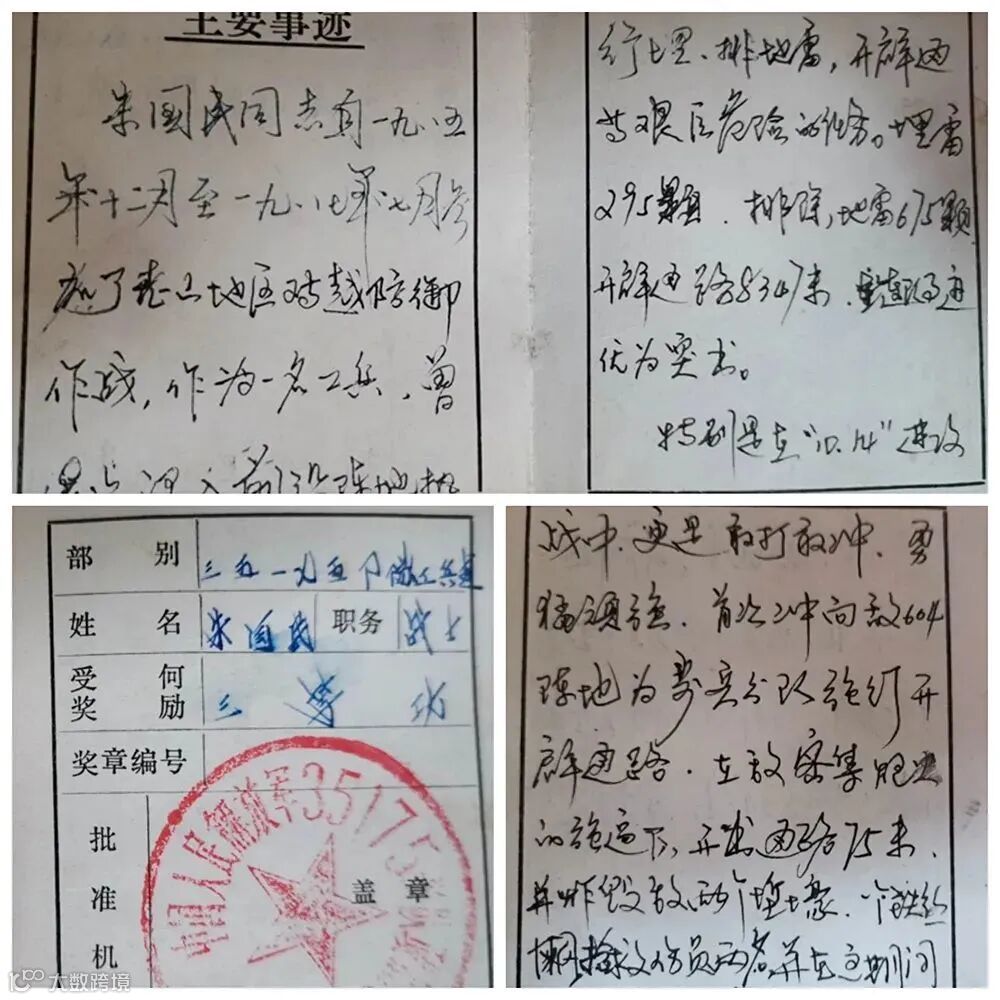 主要事迹
朱国民同志自一九八五
年十二月至一九八七年七月参
加了老山地区对越防御
作战,作为一名工兵,曾
深入前沿阵地执
行埋、排地雷,开辟通
等艰巨危险的任务。埋雷
295颗,排除地雷675颗,
开辟通路8347米,
优为突出。
特别是在“10.14”进攻
部 别 三五一九五
姓 名 朱国民 职务 战士
受 何
奖 励 三等功
奖章编号
批
准
机
中国人民解放军35175
盖 章
战中,更是敢打敢冲,勇
猛顽强,首次冲向敌604
阵地为步兵分队
开
辟通路,在敌密集炮火
的 下,开出通路75米,
并炸毁敌两个堑壕,一个铁丝
网 伤员两名并在 期间
大数跨境